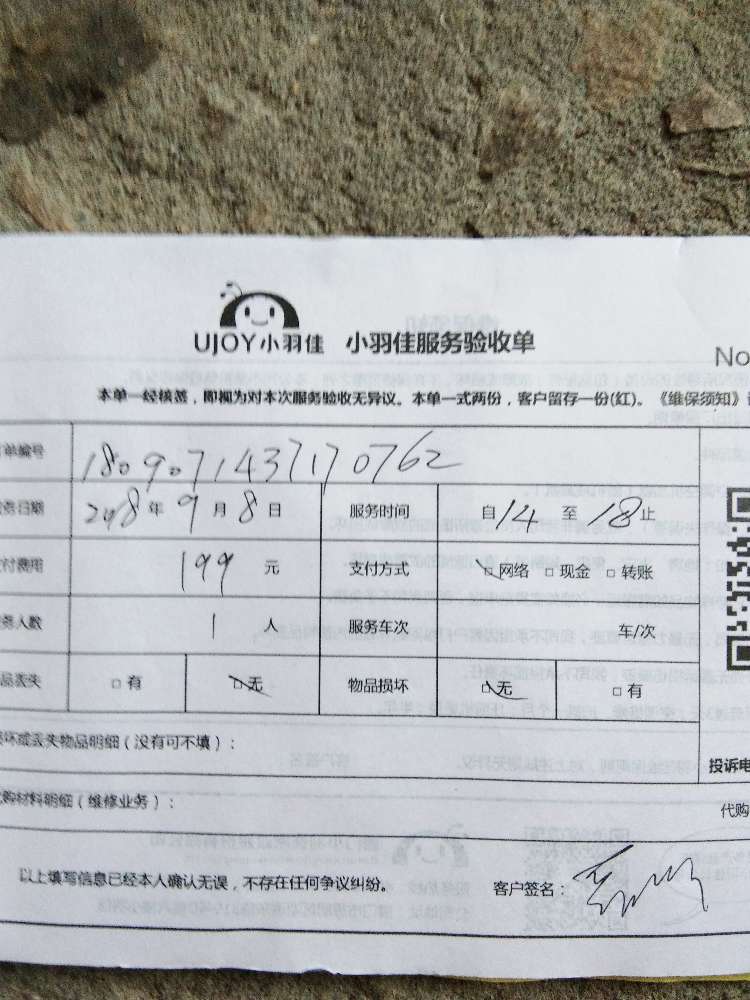 UJOY小羽佳 小羽佳服务验收单
No
本单一经核签，即视为对本次服务验收无异议。本单一式两份，客户留存一份(红)。《维保须知》
单编号 1809071437170762
务日期 2018年9月8日 服务时间 自14至18止
付费用 199元 支付方式 □网络 □现金 □转账
务人数 1人 服务车次 车/次
品丢失 □有 □无 物品损坏 □无 □有
坏或丢失物品明细（没有可不填）：
投诉电
购材料明细（维修业务）：
代购
以上填写信息已经本人确认无误，不存在任何争议纠纷。 客户签名：